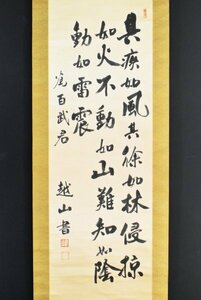 其疾如風其徐如林侵掠
如火不動如山難知如陰
動如雷震
為百武君
越山書